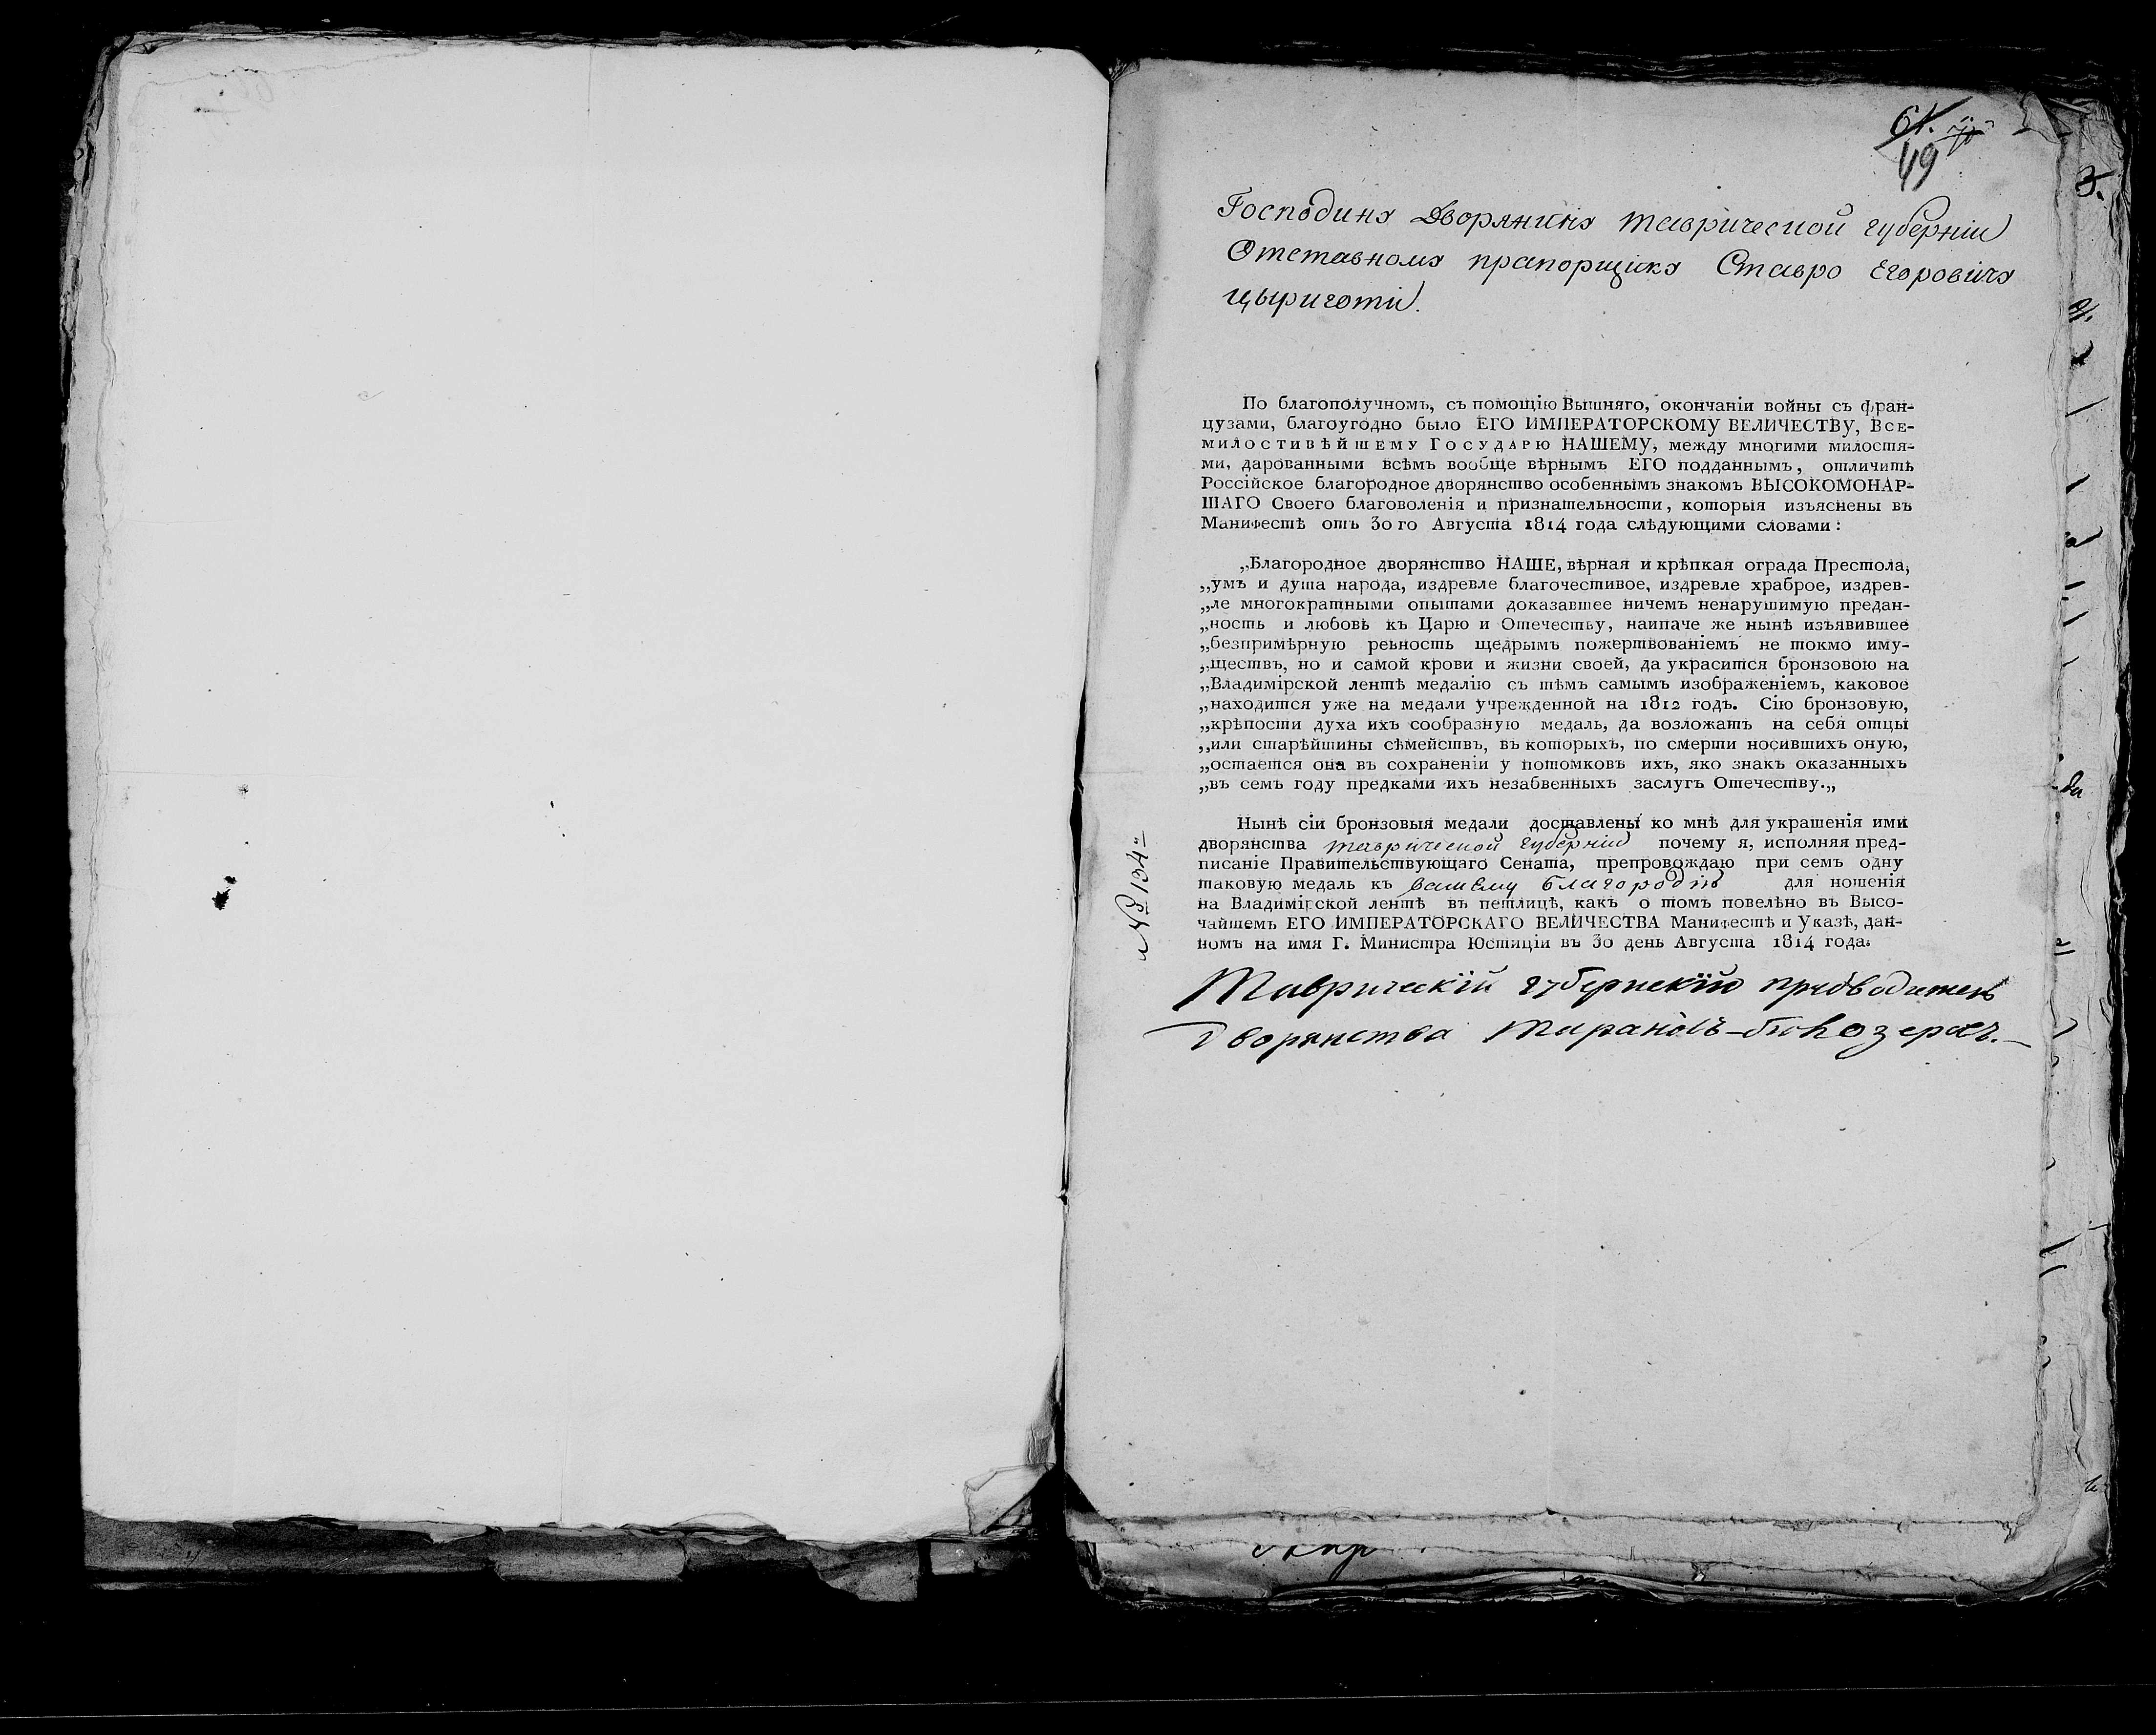 61.
49
Господинъ Дворянинъ таврической губерніи
Отставномъ прапорщикъ Ставро Егоровичъ
цыриготи.
По благополучномъ, съ помощію Вышняго, окончаніи войны съ фран-
цузами, благоугодно было ЕГО ИМПЕРАТОРСКОМУ ВЕЛИЧЕСТВУ, Все-
милостивѣйшему Государю НАШЕМУ, между многими милостя-
ми, дарованными всѣмъ вообще вѣрнымъ ЕГО подданнымъ, отличить
Россійское благородное дворянство особеннымъ знакомъ ВЫСОКОМОНАР-
ШАГО Своего благоволенія и признательности, которыя изъяснены въ
Манифестѣ отъ 30 го Августа 1814 года слѣдующими словами:
„Благородное дворянство НАШЕ, вѣрная и крѣпкая ограда Престола,
„умъ и душа народа, издревле благочестивое, издревле храброе, издрев-
„ле многократными опытами доказавшее ничемъ ненарушимую предан-
„ность и любовь къ Царю и Отечеству, наипаче же нынѣ изъявившее
„безпримѣрную ревность щедрымъ пожертвованіемъ не токмо иму-
„ществъ, но и самой крови и жизни своей, да украсится бронзовою на
„Владимірской лентѣ медалію съ тѣмъ самымъ изображеніемъ, каковое
„находится уже на медали учрежденной на 1812 годъ. Сію бронзовую,
„крѣпости духа ихъ сообразную медаль, да возложатъ на себя отцы
„или старѣйшины сѣмействъ, въ которыхъ, по смерти носившихъ оную,
„остается она въ сохраненіи у потомковъ ихъ, яко знакъ оказанныхъ
„въ семъ году предками ихъ незабвенныхъ заслугъ Отечеству.„
Нынѣ сіи бронзовыя медали доставлены ко мнѣ для украшенія ими
дворянства таврической губерніи почему я, исполняя пред-
писаніе Правительствующаго Сената, препровождаю при семъ одну
таковую медаль къ вашему благородію для ношенія
на Владимірской лентѣ въ петлицѣ, какъ о томъ повелѣно въ Высо-
чайшемъ ЕГО ИМПЕРАТОРСКАГО ВЕЛИЧЕСТВА Манифестѣ и Указѣ, дан-
номъ на имя Г. Министра Юстиціи въ 30 день Августа 1814 года.
№ 134
Таврическій губернскій предводитель
Дворянства Тарановъ-Бѣлозеровъ.